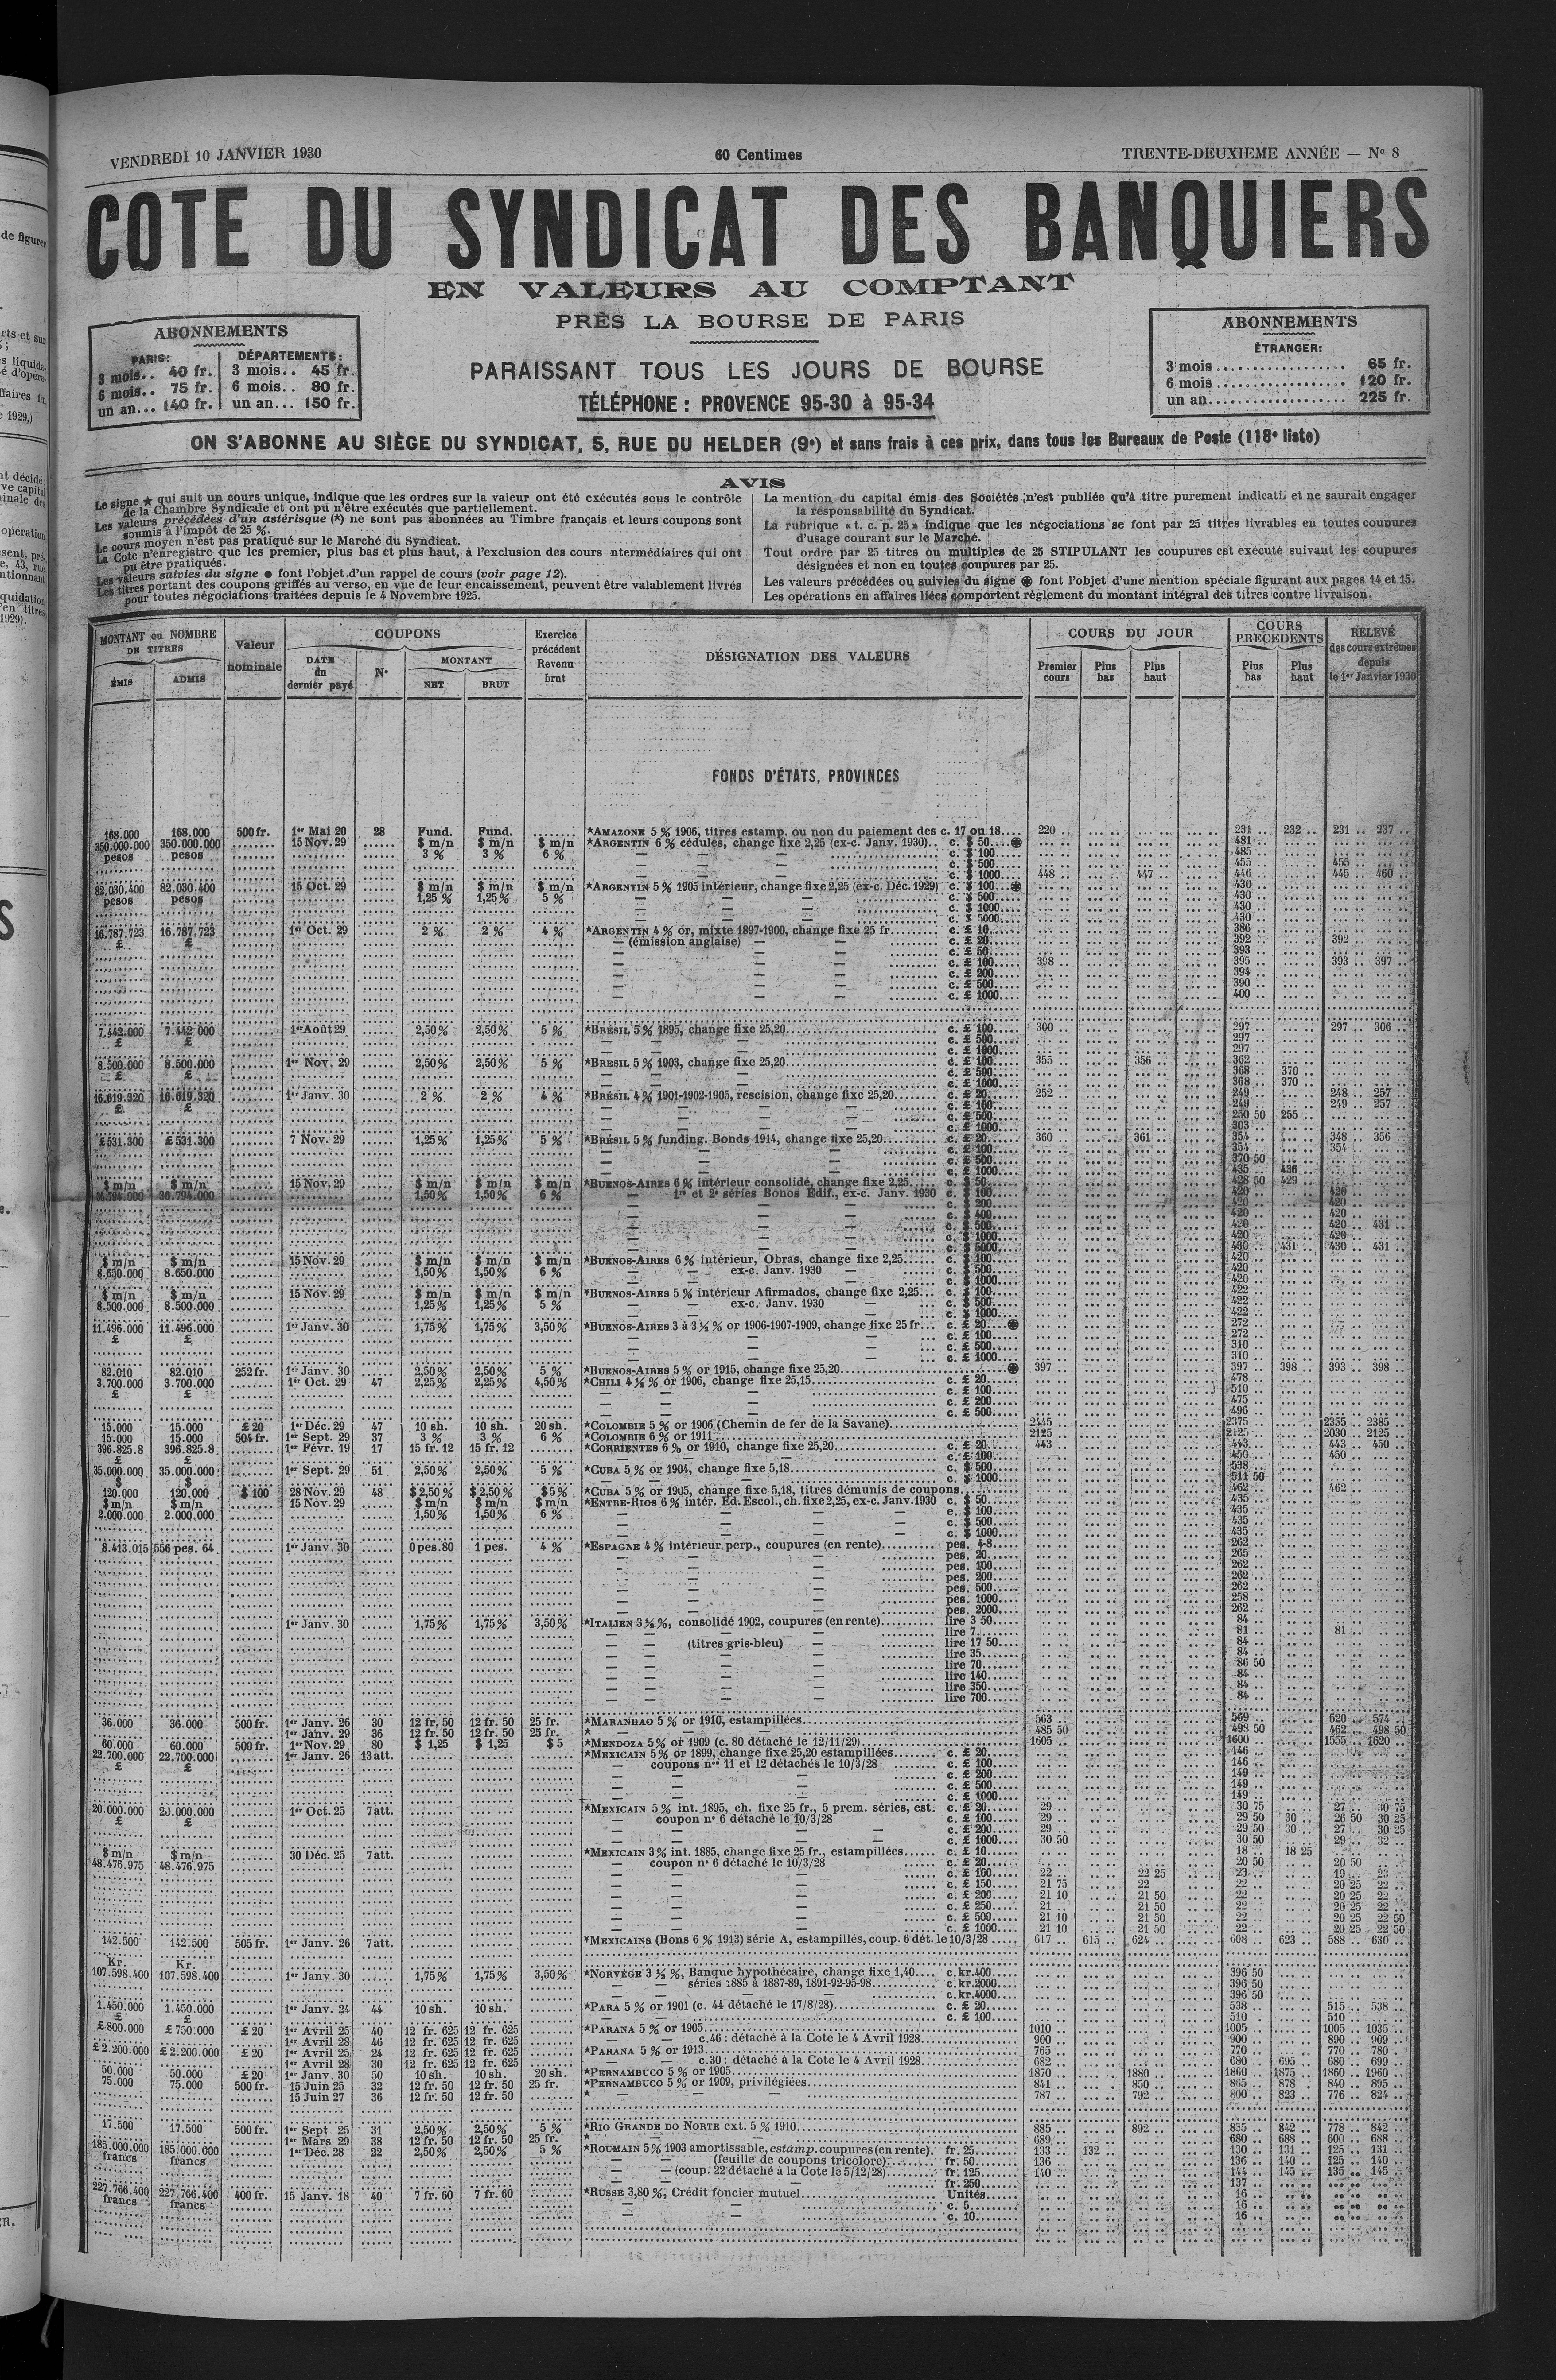 VENDREDI 10 JANVIER 1930
60 Centimes
TRENTE-DEUXIEME ANNÉE — No 8
COTE DU SYNDICAT DES BANQUIERS
EN VALEURS AU COMPTANT
PRÈS LA BOURSE DE PARIS
PARAISSANT TOUS LES JOURS DE BOURSE
TÉLÉPHONE : PROVENCE 95-30 à 95-34
ABONNEMENTS
PARIS: DÉPARTEMENTS:
3 mois.. 40 fr. 3 mois.. 45 fr.
6 mois.. 75 fr. 6 mois.. 80 fr.
un an... 140 fr. un an... 150 fr.
ABONNEMENTS
ÉTRANGER:
3 mois 65 fr.
6 mois 120 fr.
un an 225 fr.
ON S'ABONNE AU SIÈGE DU SYNDICAT, 5, RUE DU HELDER (9e) et sans frais à ces prix, dans tous les Bureaux de Poste (118e liste)
AVIS
Le signe ★ qui suit un cours unique, indique que les ordres sur la valeur ont été exécutés sous le contrôle
de la Chambre Syndicale et ont pu n'être exécutés que partiellement.
Les valeurs précédées d'un astérisque (*) ne sont pas abonnées au Timbre français et leurs coupons sont
soumis à l'impôt de 25 %.
Le cours moyen n'est pas pratiqué sur le Marché du Syndicat.
La Cote n'enregistre que les premier, plus bas et plus haut, à l'exclusion des cours ntermédiaires qui ont
pu être pratiqués.
Les valeurs suivies du signe ● font l'objet d'un rappel de cours (voir page 12).
Les titres portant des coupons griffés au verso, en vue de leur encaissement, peuvent être valablement livrés
pour toutes négociations traitées depuis le 4 Novembre 1925.
La mention du capital émis des Sociétés n'est publiée qu'à titre purement indicati. et ne saurait engager
la responsabilité du Syndicat.
La rubrique « t. c. p. 25 » indique que les négociations se font par 25 titres livrables en toutes coupures
d'usage courant sur le Marché.
Tout ordre par 25 titres ou multiples de 25 STIPULANT les coupures est exécuté suivant les coupures
désignées et non en toutes coupures par 25.
Les valeurs précédées ou suivies du signe font l'objet d'une mention spéciale figurant aux pages 14 et 15.
Les opérations en affaires liées comportent règlement du montant intégral des titres contre livraison.
MONTANT ou NOMBRE DE TITRES
ÉMIS ADMIS
Valeur nominale
COUPONS
DATE du dernier payé
No
MONTANT
NET BRUT
Exercice précédent Revenu brut
DÉSIGNATION DES VALEURS
COURS DU JOUR
Premier cours Plus bas Plus haut
COURS PRECEDENTS
Plus bas Plus haut
RELEVÉ des cours extrêmes depuis le 1er Janvier 1930
FONDS D'ÉTATS, PROVINCES
168.000 168.000 500 fr. 1er Mai 20 28 Fund. Fund. *AMAZONE 5 % 1906, titres estamp. ou non du paiement des c. 17 ou 18 220 231 232 231 237
350.000.000 350.000.000 15 Nov. 29 $ m/n $ m/n $ m/n *ARGENTIN 6 % cédules, change fixe 2,25 (ex-c. Janv. 1930) c. $ 50 481
pesos pesos 3 % 3 % 6 % c. $ 100 485
c. $ 500 455 455
c. $ 1000 448 447 446 445 460
82.030.400 82.030.400 15 Oct. 29 $ m/n $ m/n $ m/n *ARGENTIN 5 % 1905 intérieur, change fixe 2,25 (ex-c. Déc. 1929) c. $ 100 430
pesos pesos 1,25 % 1,25 % 5 % c. $ 500 430
c. $ 1000 430
c. $ 5000 430
16.787.723 16.787.723 1er Oct. 29 2 % 2 % 4 % *ARGENTIN 4 % or, mixte 1897-1900, change fixe 25 fr. c. £ 10 386
£ £ — (émission anglaise) — — c. £ 20 392 392
c. £ 50 393
c. £ 100 398 395 393 397
c. £ 200 394
c. £ 500 390
c. £ 1000 400
7.442.000 7.442.000 1er Août 29 2,50 % 2,50 % 5 % *BRÉSIL 5 % 1895, change fixe 25,20 c. £ 100 300 297 297 306
£ £ c. £ 500 297
c. £ 1000 297
8.500.000 8.500.000 1er Nov. 29 2,50 % 2,50 % 5 % *BRESIL 5 % 1903, change fixe 25,20 c. £ 100 355 356 362
£ £ c. £ 500 368 370
c. £ 1000 368 370
16.619.320 16.619.320 1er Janv. 30 2 % 2 % 4 % *BRÉSIL 4 % 1901-1902-1905, rescision, change fixe 25,20 c. £ 20 252 249 248 257
£ £ c. £ 100 249 249 257
c. £ 500 250 50 255
c. £ 1000 303
£ 531.300 £ 531.300 7 Nov. 29 1,25 % 1,25 % 5 % *BRÉSIL 5 % funding. Bonds 1914, change fixe 25,20 c. £ 20 360 361 354 348 356
c. £ 100 354 354
c. £ 500 370 50
c. £ 1000 435 436
$ m/n $ m/n 15 Nov. 29 $ m/n $ m/n $ m/n *BUENOS-AIRES 6 % intérieur consolidé, change fixe 2,25 c. $ 50 428 50 429
36.794.000 1,50 % 1,50 % 6 % — 1re et 2e séries Bonos Edif., ex-c. Janv. 1930 c. $ 100 420 420
c. $ 200 420 420
c. $ 400 420 420
c. $ 500 420 420 431
c. $ 1000 420 420
c. $ 5000 430 431 430 431
$ m/n $ m/n 15 Nov. 29 $ m/n $ m/n $ m/n *BUENOS-AIRES 6 % intérieur, Obras, change fixe 2,25 c. $ 100 420
8.650.000 8.650.000 1,50 % 1,50 % 6 % — ex-c. Janv. 1930 — c. $ 500 420
c. $ 1000 420
$ m/n $ m/n 15 Nov. 29 $ m/n $ m/n $ m/n *BUENOS-AIRES 5 % intérieur Afirmados, change fixe 2,25 c. $ 100 422
8.500.000 8.500.000 1,25 % 1,25 % 5 % — ex-c. Janv. 1930 — c. $ 500 422
c. $ 1000 422
11.496.000 11.496.000 1er Janv. 30 1,75 % 1,75 % 3,50 % *BUENOS-AIRES 3 à 3 ½ % or 1906-1907-1909, change fixe 25 fr. c. £ 20 272
£ £ c. £ 100 272
c. £ 500 310
c. £ 1000 310
82.010 82.010 252 fr. 1er Janv. 30 2,50 % 2,50 % 5 % *BUENOS-AIRES 5 % or 1915, change fixe 25,20 397 397 398 393 398
3.700.000 3.700.000 1er Oct. 29 47 2,25 % 2,25 % 4,50 % *CHILI 4 ½ % or 1906, change fixe 25,15 c. £ 20 478
£ £ c. £ 100 510
c. £ 200 475
c. £ 500 496
15.000 15.000 £ 20 1er Déc. 29 47 10 sh. 10 sh. 20 sh. *COLOMBIE 5 % or 1906 (Chemin de fer de la Savane) 2445 2375 2355 2385
15.000 15.000 504 fr. 1er Sept. 29 37 3 % 3 % 6 % *COLOMBIE 6 % or 1911 2125 2125 2030 2125
396.825.8 396.825.8 1er Févr. 19 17 15 fr. 12 15 fr. 12 *CORRIENTES 6 % or 1910, change fixe 25,20 c. £ 20 443 443 443 450
£ £ c. £ 100 450 450
35.000.000 35.000.000 1er Sept. 29 51 2,50 % 2,50 % 5 % *CUBA 5 % or 1904, change fixe 5,18 c. $ 500 538
$ $ c. $ 1000 511 50
120.000 120.000 $ 100 28 Nov. 29 48 $ 2,50 % $ 2,50 % $ 5 % *CUBA 5 % or 1905, change fixe 5,18, titres démunis de coupons 462 462
$ m/n $ m/n 15 Nov. 29 $ m/n $ m/n $ m/n *ENTRE-RIOS 6 % intér. Ed. Escol., ch. fixe 2,25, ex-c. Janv. 1930 c. $ 50 435
2.000.000 2.000.000 1,50 % 1,50 % 6 % c. $ 100 435
c. $ 500 435
c. $ 1000 435
8.413.015 556 pes. 64 1er Janv. 30 0 pes. 80 1 pes. 4 % *ESPAGNE 4 % intérieur perp., coupures (en rente) pes. 4-8 262
pes. 20 265
pes. 100 262
pes. 200 262
pes. 500 262
pes. 1000 258
pes. 2000 262
1er Janv. 30 1,75 % 1,75 % 3,50 % *ITALIEN 3 ½ %, consolidé 1902, coupures (en rente) lire 3 50 84
lire 7 81 81
(titres gris-bleu) lire 17 50 84
lire 35 84
lire 70 86 50
lire 140 84
lire 350 84
lire 700 84
36.000 36.000 500 fr. 1er Janv. 26 30 12 fr. 50 12 fr. 50 25 fr. *MARANHAO 5 % or 1910, estampillées 563 569 520 574
1er Janv. 29 36 12 fr. 50 12 fr. 50 25 fr. * — 485 50 498 50 462 498 50
60.000 60.000 500 fr. 1er Nov. 29 80 $ 1,25 $ 1,25 $ 5 *MENDOZA 5 % or 1909 (c. 80 détaché le 12/11/29) 1605 1600 1555 1620
22.700.000 22.700.000 1er Janv. 26 13 att. *MEXICAIN 5 % or 1899, change fixe 25,20 estampillées c. £ 20 146
£ £ — coupons nos 11 et 12 détachés le 10/3/28 c. £ 100 146
c. £ 200 149
c. £ 500 149
c. £ 1000 149
20.000.000 20.000.000 1er Oct. 25 7 att. *MEXICAIN 5 % int. 1895, ch. fixe 25 fr., 5 prem. séries, est. c. £ 20 29 30 75 27 30 75
£ £ — coupon no 6 détaché le 10/3/28 c. £ 100 29 29 50 30 26 50 30 25
c. £ 200 29 29 50 30 27 30 25
c. £ 1000 30 50 30 50 29 32
$ m/n $ m/n 30 Déc. 25 7 att. *MEXICAIN 3 % int. 1885, change fixe 25 fr., estampillées c. £ 10 18 18 25
48.476.975 48.476.975 — coupon no 6 détaché le 10/3/28 c. £ 20 20 50 20 50
c. £ 100 22 22 25 23 19 23
c. £ 150 21 75 22 22 20 25 22
c. £ 200 21 10 21 50 22 20 25 22
c. £ 250 21 21 50 22 20 25 22
c. £ 500 21 10 21 50 22 20 25 22 50
c. £ 1000 21 10 21 50 22 20 25 22 50
142.500 142.500 505 fr. 1er Janv. 26 7 att. *MEXICAINS (Bons 6 % 1913) série A, estampillés, coup. 6 dét. le 10/3/28 617 615 624 608 623 588 630
Kr. Kr.
107.598.400 107.598.400 1er Janv. 30 1,75 % 1,75 % 3,50 % *NORVÈGE 3 ½ %, Banque hypothécaire, change fixe 1,40 c. kr. 400 396 50
séries 1885 à 1887-89, 1891-92-95-98 c. kr. 2000 396 50
c. kr. 4000 396 50
1.450.000 1.450.000 1er Janv. 24 44 10 sh. 10 sh. *PARA 5 % or 1901 (c. 44 détaché le 17/8/28) c. £ 20 538 515 538
£ £ c. £ 100 510 510
£ 800.000 £ 750.000 £ 20 1er Avril 25 40 12 fr. 625 12 fr. 625 *PARANA 5 % or 1905 1010 1005 1005 1035
1er Avril 28 46 12 fr. 625 12 fr. 625 — c. 46 : détaché à la Cote le 4 Avril 1928 900 900 890 909
£ 2.200.000 £ 2.200.000 £ 20 1er Avril 25 24 12 fr. 625 12 fr. 625 *PARANA 5 % or 1913 765 770 770 780
1er Avril 28 30 12 fr. 625 12 fr. 625 — c. 30 : détaché à la Cote le 4 Avril 1928 682 680 695 680 699
50.000 50.000 £ 20 1er Janv. 30 50 10 sh. 10 sh. 20 sh. *PERNAMBUCO 5 % or 1905 1870 1880 1860 1875 1860 1960
75.000 75.000 500 fr. 15 Juin 25 32 12 fr. 50 12 fr. 50 25 fr. *PERNAMBUCO 5 % or 1909, privilégiées 841 850 865 878 840 895
15 Juin 27 36 12 fr. 50 12 fr. 50 * — 787 792 800 823 776 824
17.500 17.500 500 fr. 1er Sept 25 31 2,50 % 2,50 % 5 % *RIO GRANDE DO NORTE ext. 5 % 1910 885 892 835 842 778 842
1er Mars 29 38 12 fr. 50 12 fr. 50 25 fr. * — 689 680 688 600 688
185.000.000 185.000.000 1er Déc. 28 22 2,50 % 2,50 % 5 % *ROUMAIN 5 % 1903 amortissable, estamp. coupures (en rente). fr. 25 133 132 130 131 125 131
francs francs — (feuille de coupons tricolore) fr. 50 136 136 140 125 140
— (coup. 22 détaché à la Cote le 5/12/28) fr. 125 140 144 145 135 145
fr. 250 137
227.766.400 227.766.400 400 fr. 15 Janv. 18 40 7 fr. 60 7 fr. 60 *RUSSE 3,80 %, Crédit foncier mutuel Unités 16
francs francs c. 5 16
c. 10 16